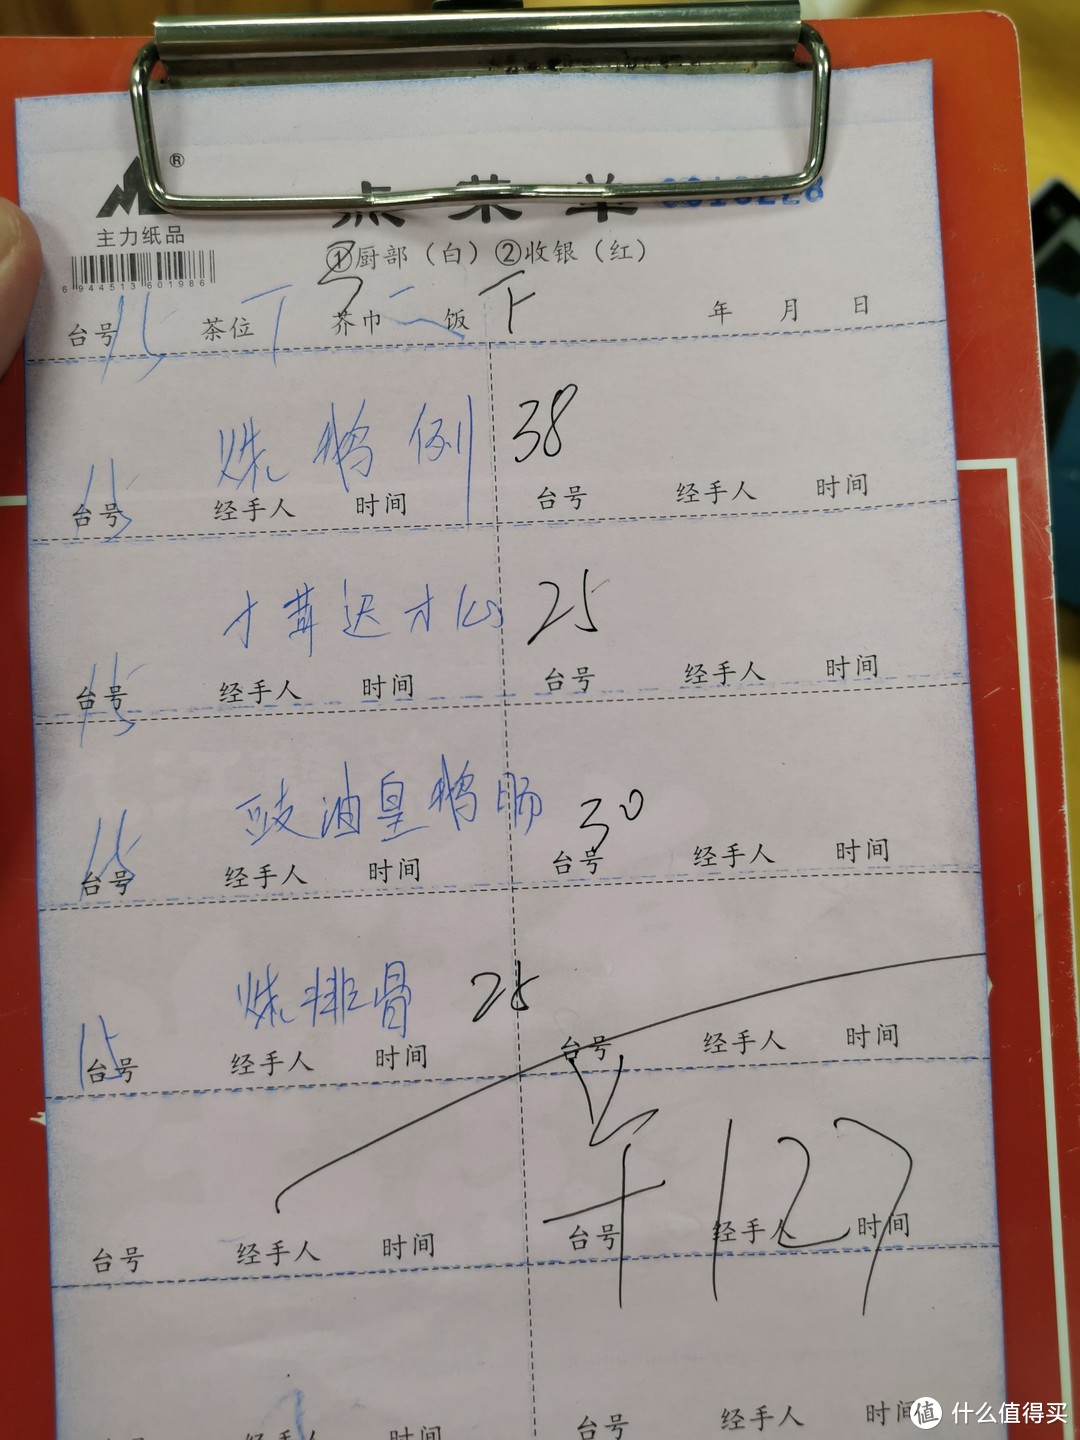 ®
点菜单 0016228
主力纸品
①厨部（白）②收银（红）
6 944513 601986
3
台号 15 茶位 丁 芥巾 二 饭 下 年 月 日
烧鹅例 38
台号 15 经手人 时间 台号 经手人 时间
25
台号 15 经手人 时间 台号 经手人 时间
豉油皇鹅肠 30
台号 15 经手人 时间 台号 经手人 时间
烧排骨 25
台号 15 经手人 时间 台号 经手人 时间
¥127
台号 经手人 时间 台号 经手人 时间
台号 经手人 时间 台号 经手人 时间
值 什么值得买